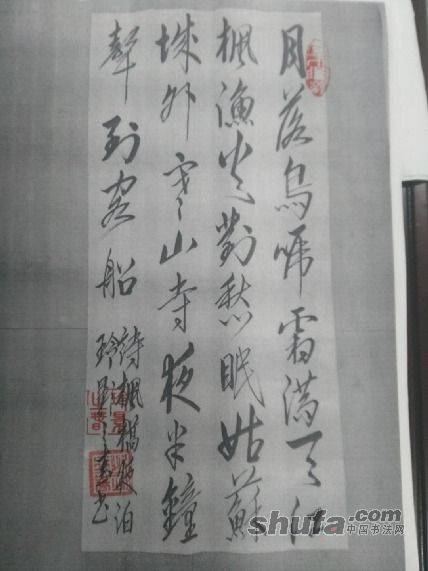 月落烏啼霜满天江
枫漁火對愁眠姑蘇
城外寒山寺夜半鐘
聲到客船
詩楓橋夜泊
shufa.com
中国书法网